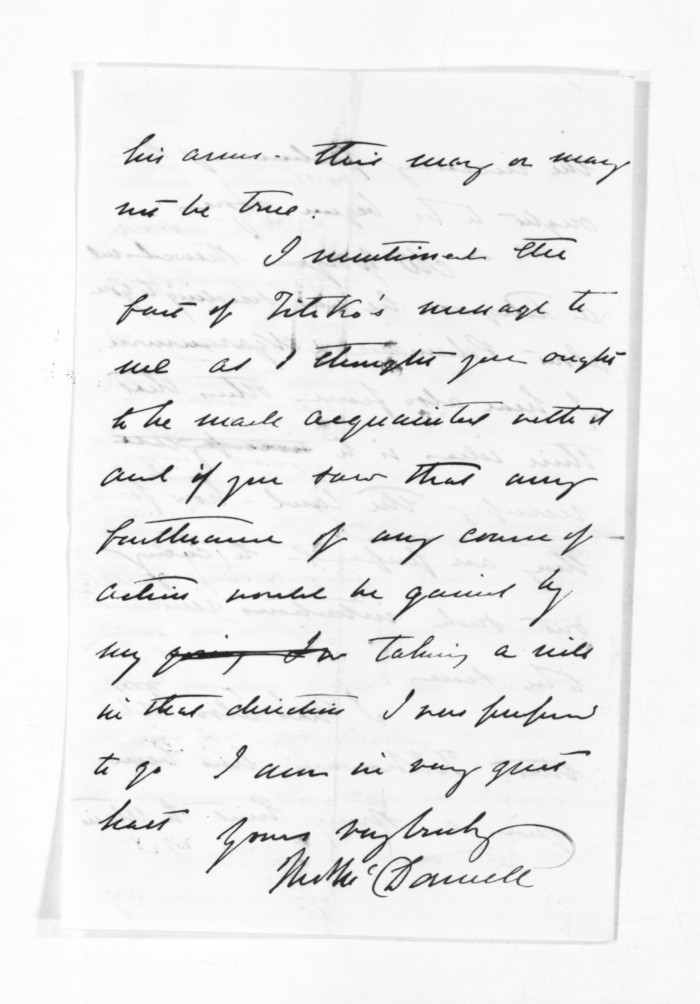 his arms. this may or may
not be true.
I mentioned the
fact of Titoko's message to
me as I thought you ought
to be made acquainted with it
and if you saw that any
furtherance of any course of
action would be gained by
my taking a ride
in that direction I was prepared
to go I am in very great
haste Yours very truly
Thos McDonnell